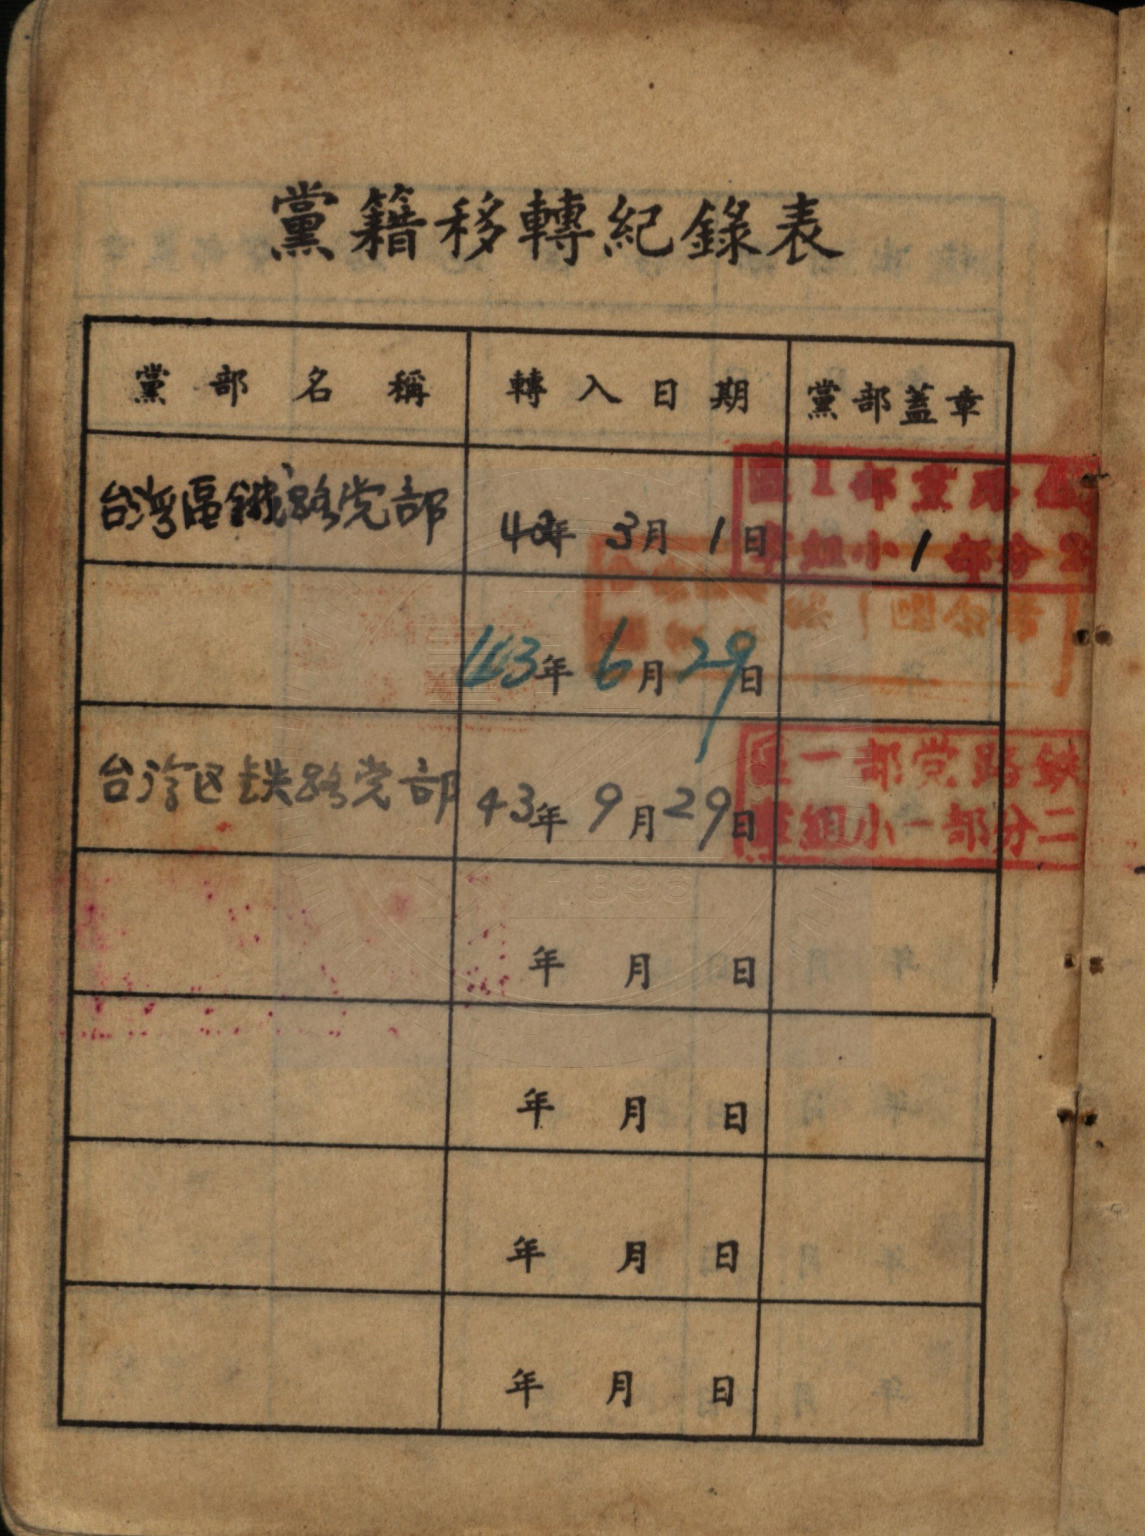 黨籍移轉紀錄表
黨部名稱 轉入日期 黨部蓋章
台湾區鐵路党部 43年 3月 1日
43年 6月 29日
台湾区铁路党部 43年 9月 29日
铁路党部一
二分部一小組
年 月 日
年 月 日
年 月 日
年 月 日